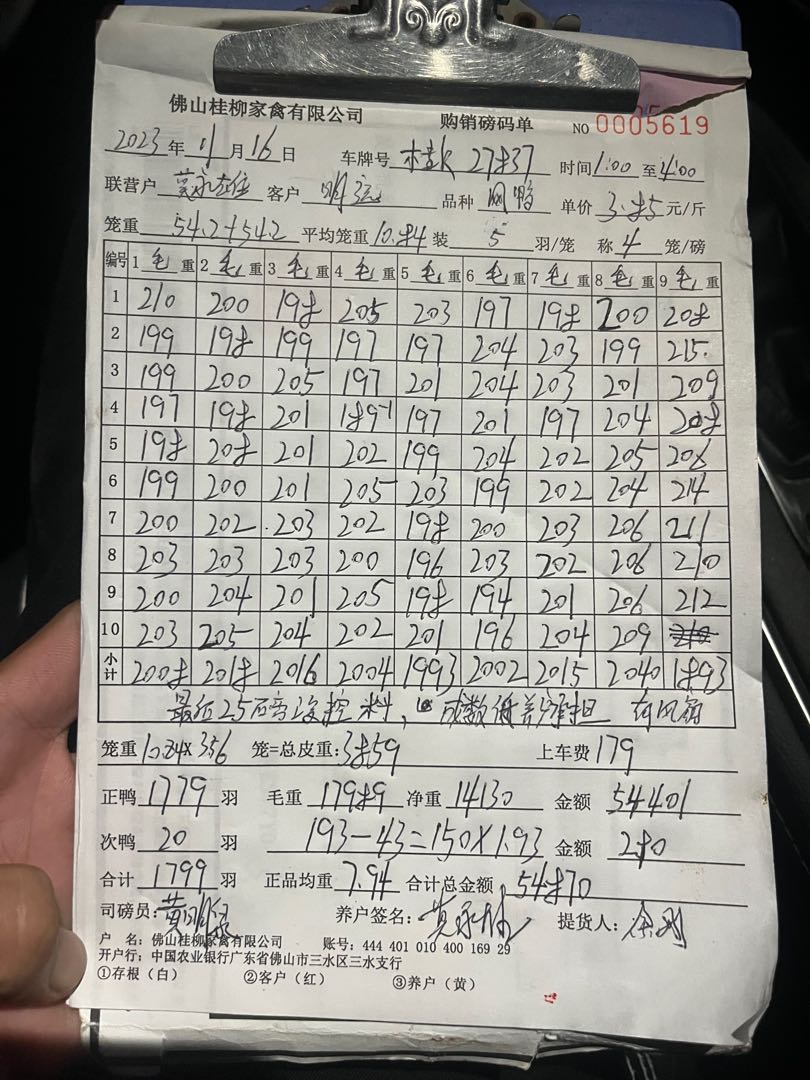 佛山桂柳家禽有限公司 购销磅码单 NO 0005619
2023年11月16日 车牌号 桂K 27837 时间1:00至4:00
联营户 客户 明 品种 单价 3.85 元/斤
笼重 54.2+54.2 平均笼重 10.84 装 5 羽/笼 称 4 笼/磅
编号 1 毛重 2 毛重 3 毛重 4 毛重 5 毛重 6 毛重 7 毛重 8 毛重 9 毛重
1 210 200 198 205 203 197 198 200 208
2 199 198 199 197 197 204 203 199 215
3 199 200 205 197 201 204 203 201 209
4 197 198 201 189-1 197 201 197 204 208
5 198 208 201 202 199 204 202 205 206
6 199 200 201 205 203 199 202 204 214
7 200 202 203 202 198 200 203 206 211
8 203 203 203 200 196 203 202 206 210
9 200 204 201 205 198 194 201 206 212
10 203 205 204 202 201 196 204 209
小计 2008 2018 2016 2004 1993 2002 2015 2040 1893
最后25磅没控料, 成数 养户承担
笼重 10.84×356 笼=总皮重: 3859 上车费 179
正鸭 1779 羽 毛重 17989 净重 14130 金额 54401
次鸭 20 羽 193-43=150×1.93 金额 290
合计 1799 羽 正品均重 7.94 合计总金额 54870
司磅员: 养户签名: 提货人:
户 名: 佛山桂柳家禽有限公司 账号: 444 401 010 400 169 29
开户行: 中国农业银行广东省佛山市三水区三水支行
①存根（白） ②客户（红） ③养户（黄）